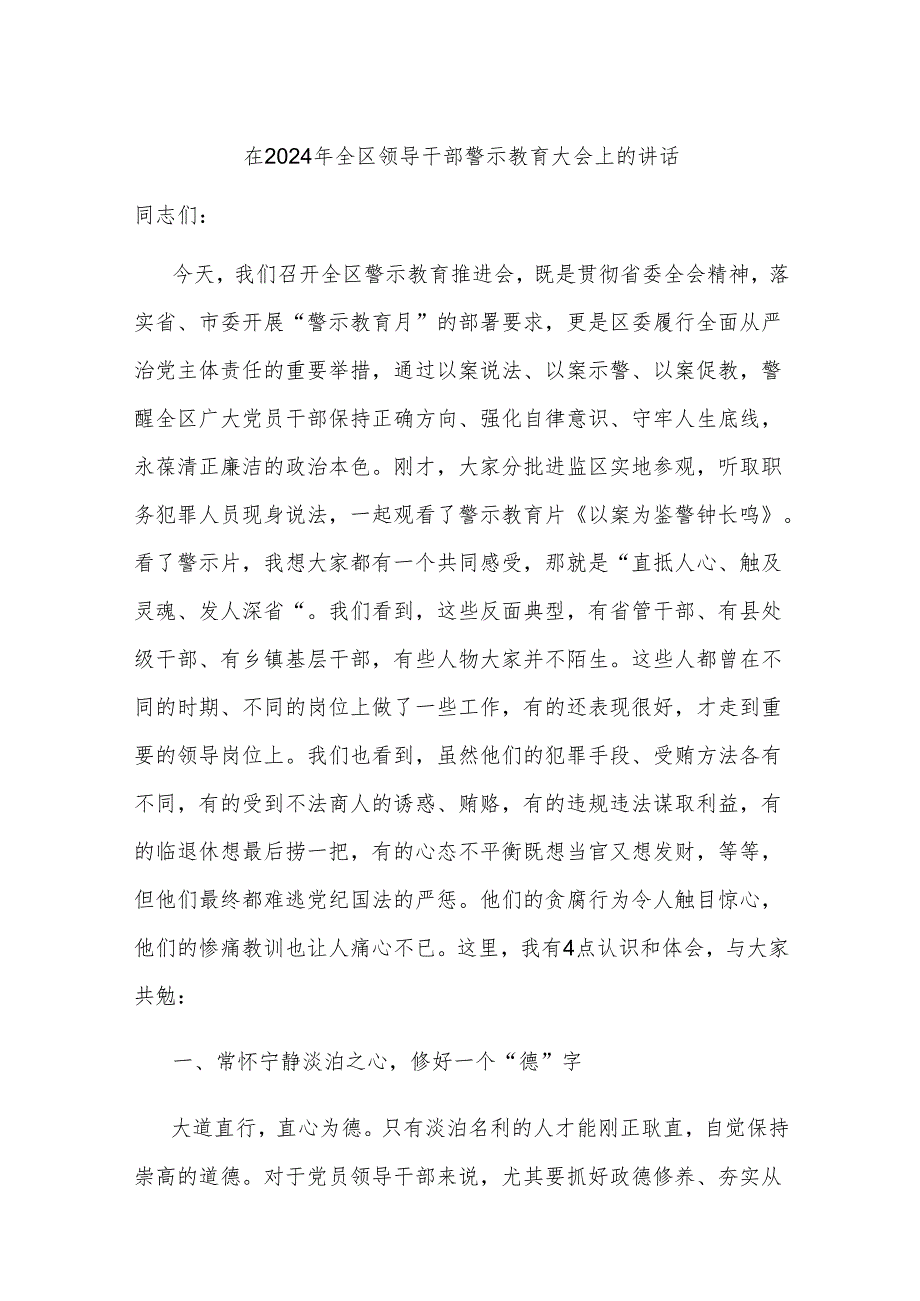 在2024年全区领导干部警示教育大会上的讲话
同志们：
今天，我们召开全区警示教育推进会，既是贯彻省委全会精神，落
实省、市委开展“警示教育月”的部署要求，更是区委履行全面从严
治党主体责任的重要举措，通过以案说法、以案示警、以案促教，警
醒全区广大党员干部保持正确方向、强化自律意识、守牢人生底线，
永葆清正廉洁的政治本色。刚才，大家分批进监区实地参观，听取职
务犯罪人员现身说法，一起观看了警示教育片《以案为鉴警钟长鸣》。
看了警示片，我想大家都有一个共同感受，那就是“直抵人心、触及
灵魂、发人深省“。我们看到，这些反面典型，有省管干部、有县处
级干部、有乡镇基层干部，有些人物大家并不陌生。这些人都曾在不
同的时期、不同的岗位上做了一些工作，有的还表现很好，才走到重
要的领导岗位上。我们也看到，虽然他们的犯罪手段、受贿方法各有
不同，有的受到不法商人的诱惑、贿赂，有的违规违法谋取利益，有
的临退休想最后捞一把，有的心态不平衡既想当官又想发财，等等，
但他们最终都难逃党纪国法的严惩。他们的贪腐行为令人触目惊心，
他们的惨痛教训也让人痛心不已。这里，我有4点认识和体会，与大家
共勉：
一、常怀宁静淡泊之心，修好一个“德”字
大道直行，直心为德。只有淡泊名利的人才能刚正耿直，自觉保持
崇高的道德。对于党员领导干部来说，尤其要抓好政德修养、夯实从